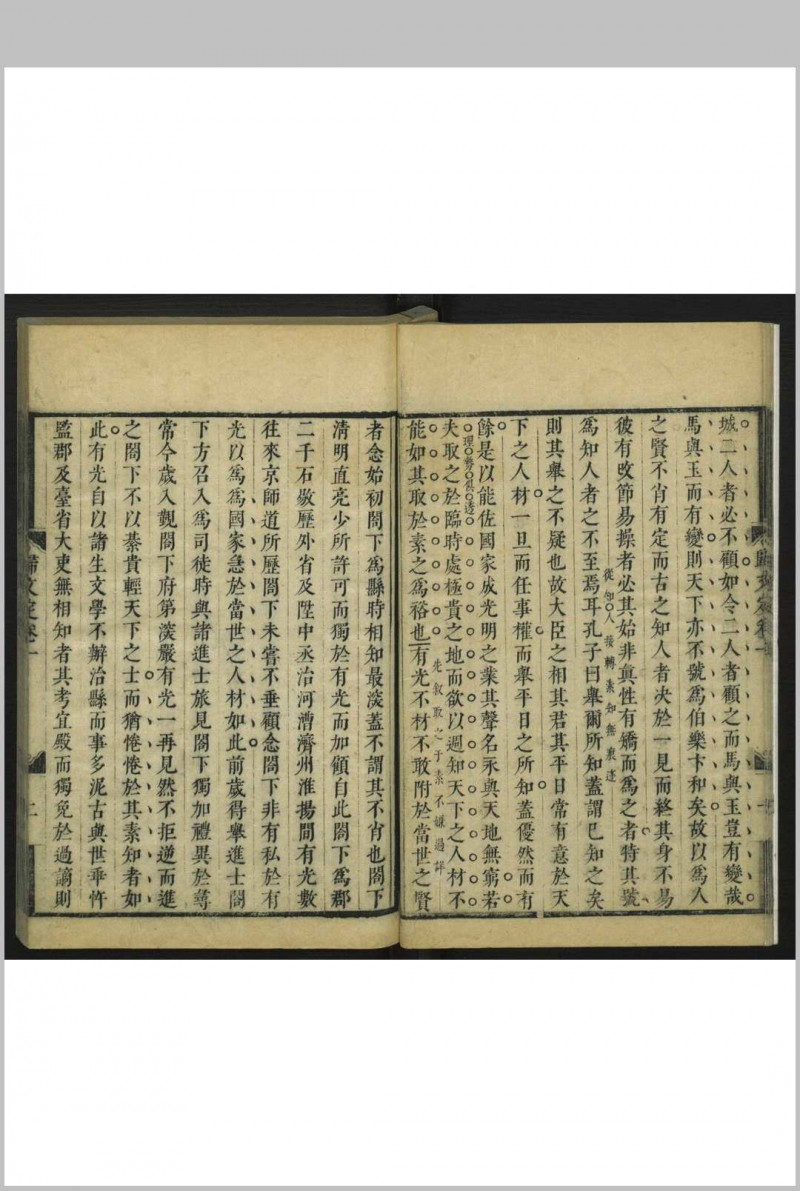 城二人者必不顧如令二人者顧之而馬與玉豈有變哉
馬與玉而有變則天下亦不號爲伯樂卞和矣故以爲人
之賢不肖有定而古之知人者决於一見而終其身不易
彼有改節易操者必其始非眞性有矯而爲之者特其號
從知人發轉素知無裏迷
爲知人者之不至焉耳孔子曰舉爾所知蓋謂已知之矣
則其舉之不疑也故大臣之相其君其平日常有意於天
下之人材一旦而任事權而舉平日之所知蓋優然而有
餘是以能佐國家成光明之業其聲名永與天地無窮若
理勢俱透
夫取之於臨時處極貴之地而欲以週知天下之人材不
能如其取於素之爲裕也有光不材不敢附於當世之賢
先叙取之于素不嫌過詳
者念始初閤下爲縣時相知最深蓋不謂其不肖也閤下
清明直亮少所許可而獨於有光而加顧自此閤下爲郡
二千石敭歷外省及陞中丞治河漕濟州淮揚間有光數
往來京師道所歷閤下未嘗不垂顧念閤下非有私於有
光以爲爲國家急於當世之人材如此前歲得舉進士閤
下方召入爲司徒時與諸進士旅見閤下獨加禮異於尋
常今歲入覲閤下府第深嚴有光一再見然不拒逆而進
之閤下不以綦貴輕天下之士而猶惓惓於其素知者如
此有光自以諸生文學不辦治縣而事多泥古與世乖忤
監郡及臺省大吏無相知者其考宜殿而獨免於過謫則
文定卷一
二